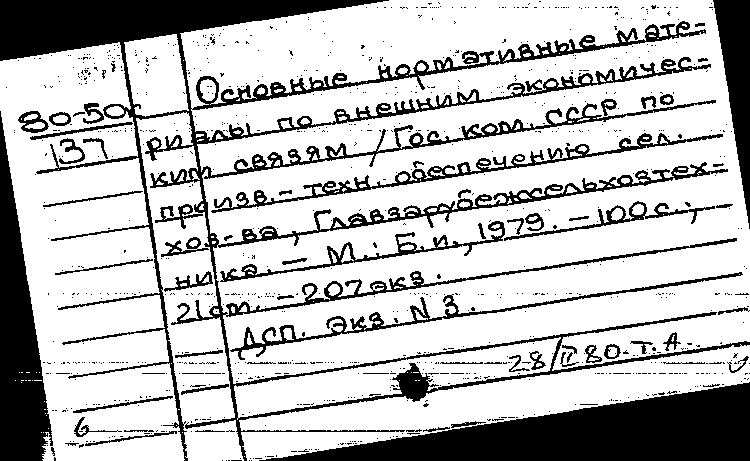 80-50к
137
Основные нормативные мате-
риалы по внешним экономичес-
ким связям / Гос. ком. СССР по
произв.-техн. обеспечению сел.
хоз-ва, Главзарубежсельхозтех-
ника. - М.: Б.и., 1979. - 100 с.;
21 см. - 207 экз.
ДСП. Экз. N 3.
28/II 80. Т. А.
6